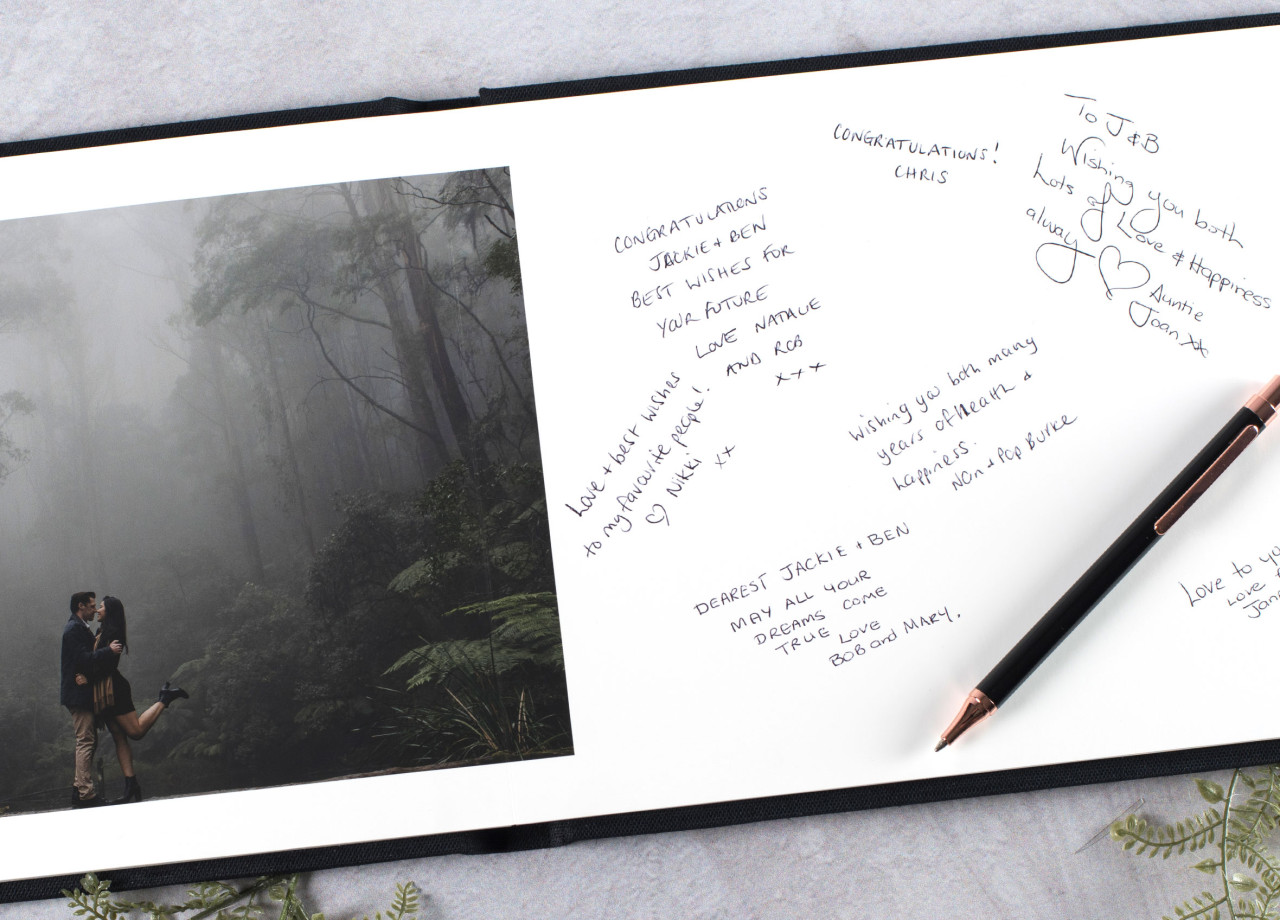 CONGRATULATIONS
JACKIE + BEN
BEST WISHES FOR
YOUR FUTURE
LOVE NATALIE
AND ROB
x x x
CONGRATULATIONS!
CHRIS
To J & B
Wishing you both
Lots of Love & Happiness
always
♡ Auntie
Joan xx
Love + best wishes
to my favourite people!
♡ Nikki xx
Wishing you both many
years of health &
happiness.
Nan + Pop Burke
DEAREST JACKIE + BEN
MAY ALL YOUR
DREAMS COME
TRUE LOVE
BOB and MARY.
Love to
Love